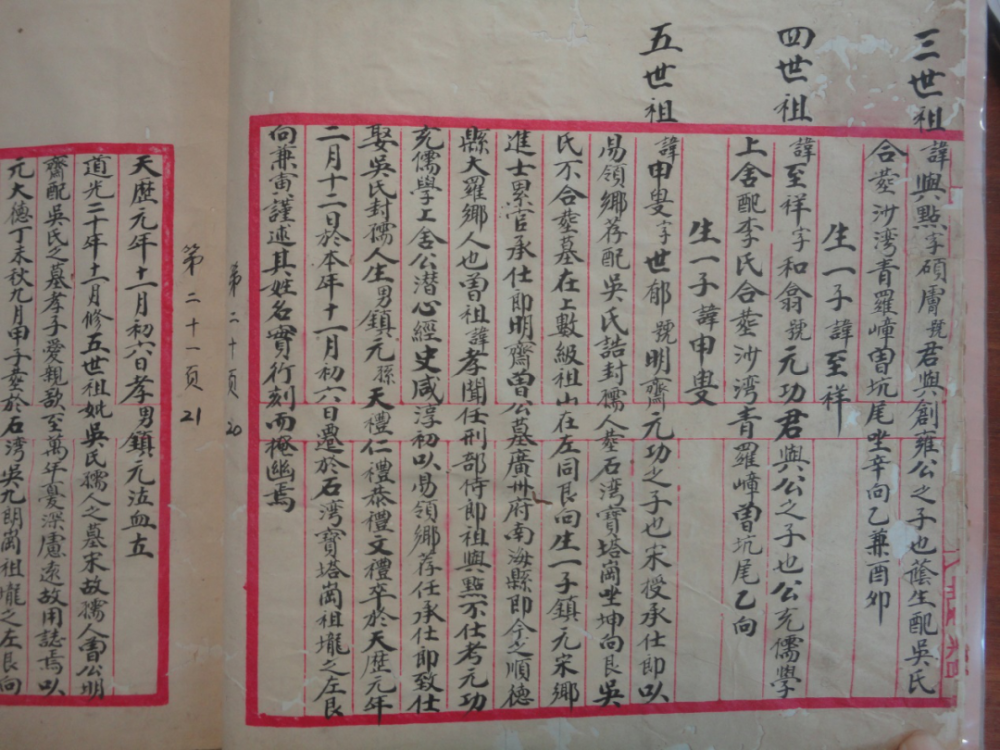 三世祖
諱興點字碩膚號君興創雍公之子也蔭生配吳氏
合塟沙湾青羅嶂曽坑尾坐辛向乙兼酉夘
生一子諱至祥
四世祖
諱至祥字和翕號元功君興公之子也公充儒學
上舍配李氏合塟沙湾青羅嶂曽坑尾乙向
生一子諱申叟
五世祖
諱申叟字世郁號明齋元功之子也宋授承仕郎以
易領鄉荐配吳氏誥封孺人塟石湾寶塔崗坐坤向艮吳
氏不合塟墓在上數級祖山在左同艮向生一子鎮元宋鄉
進士累官承仕郎明齋曽公墓廣州府南海縣即今之順德
縣大羅鄉人也曽祖諱孝聞任刑部侍郎祖興點不仕考元功
充儒學上舍公潜心經史咸淳初以易領鄉荐任承仕郎致仕
娶吳氏封孺人生男鎮元孫天禮仁禮恭禮文禮卒於天歷元年
二月十二日於本年十一月初六日遷於石湾寶塔崗祖壠之左艮
向兼寅謹述其姓名實行刻而掩幽焉
第二十頁 20
第二十一页 21
天歷元年十一月初六日孝男鎮元泣血立
道光二十年十一月修五世祖妣吳氏孺人之墓宋故孺人曽公明
齋配吳氏之墓孝子愛親歌至萬年憂深慮遠故用誌焉以
元大德丁未秋九月甲子塟於石湾吳九朗崗祖壠之左艮向